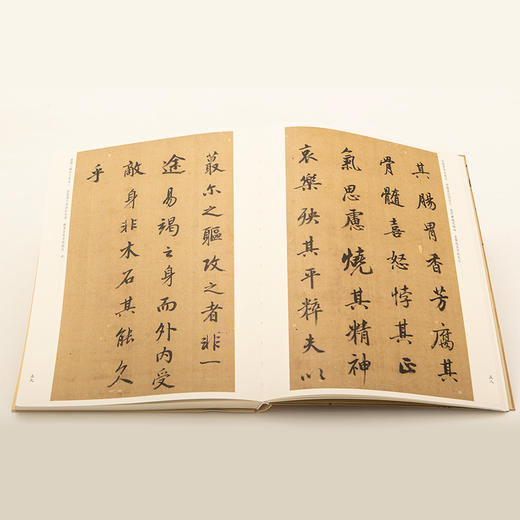 其腸胃香芳腐其
骨髓喜怒悖其正
氣思慮燒其精神
哀樂殃其平粹夫以
蕞尓之軀攻之者非一
途易竭之身而外内受
敵身非木石其能久
乎
五八
五九